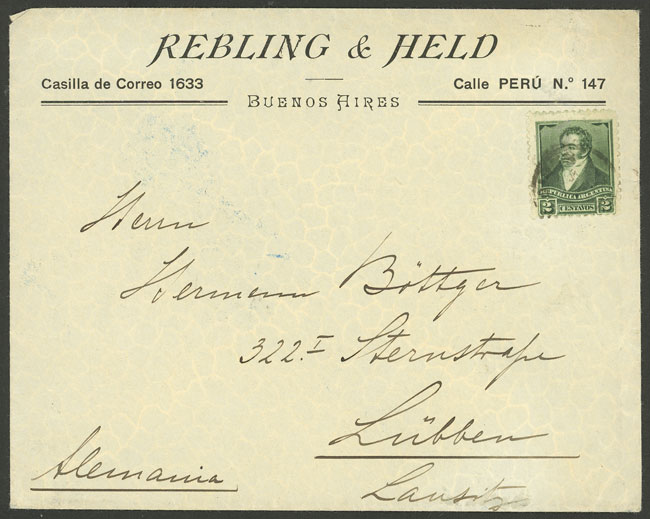 REBLING & HELD
Casilla de Correo 1633
Calle PERÚ N.º 147
BUENOS AIRES
REPUBLICA ARGENTINA
2 CENTAVOS 2
Herrn
Hermann Böttger
322.I Sternstraße
Lübben
Alemania
Lausitz